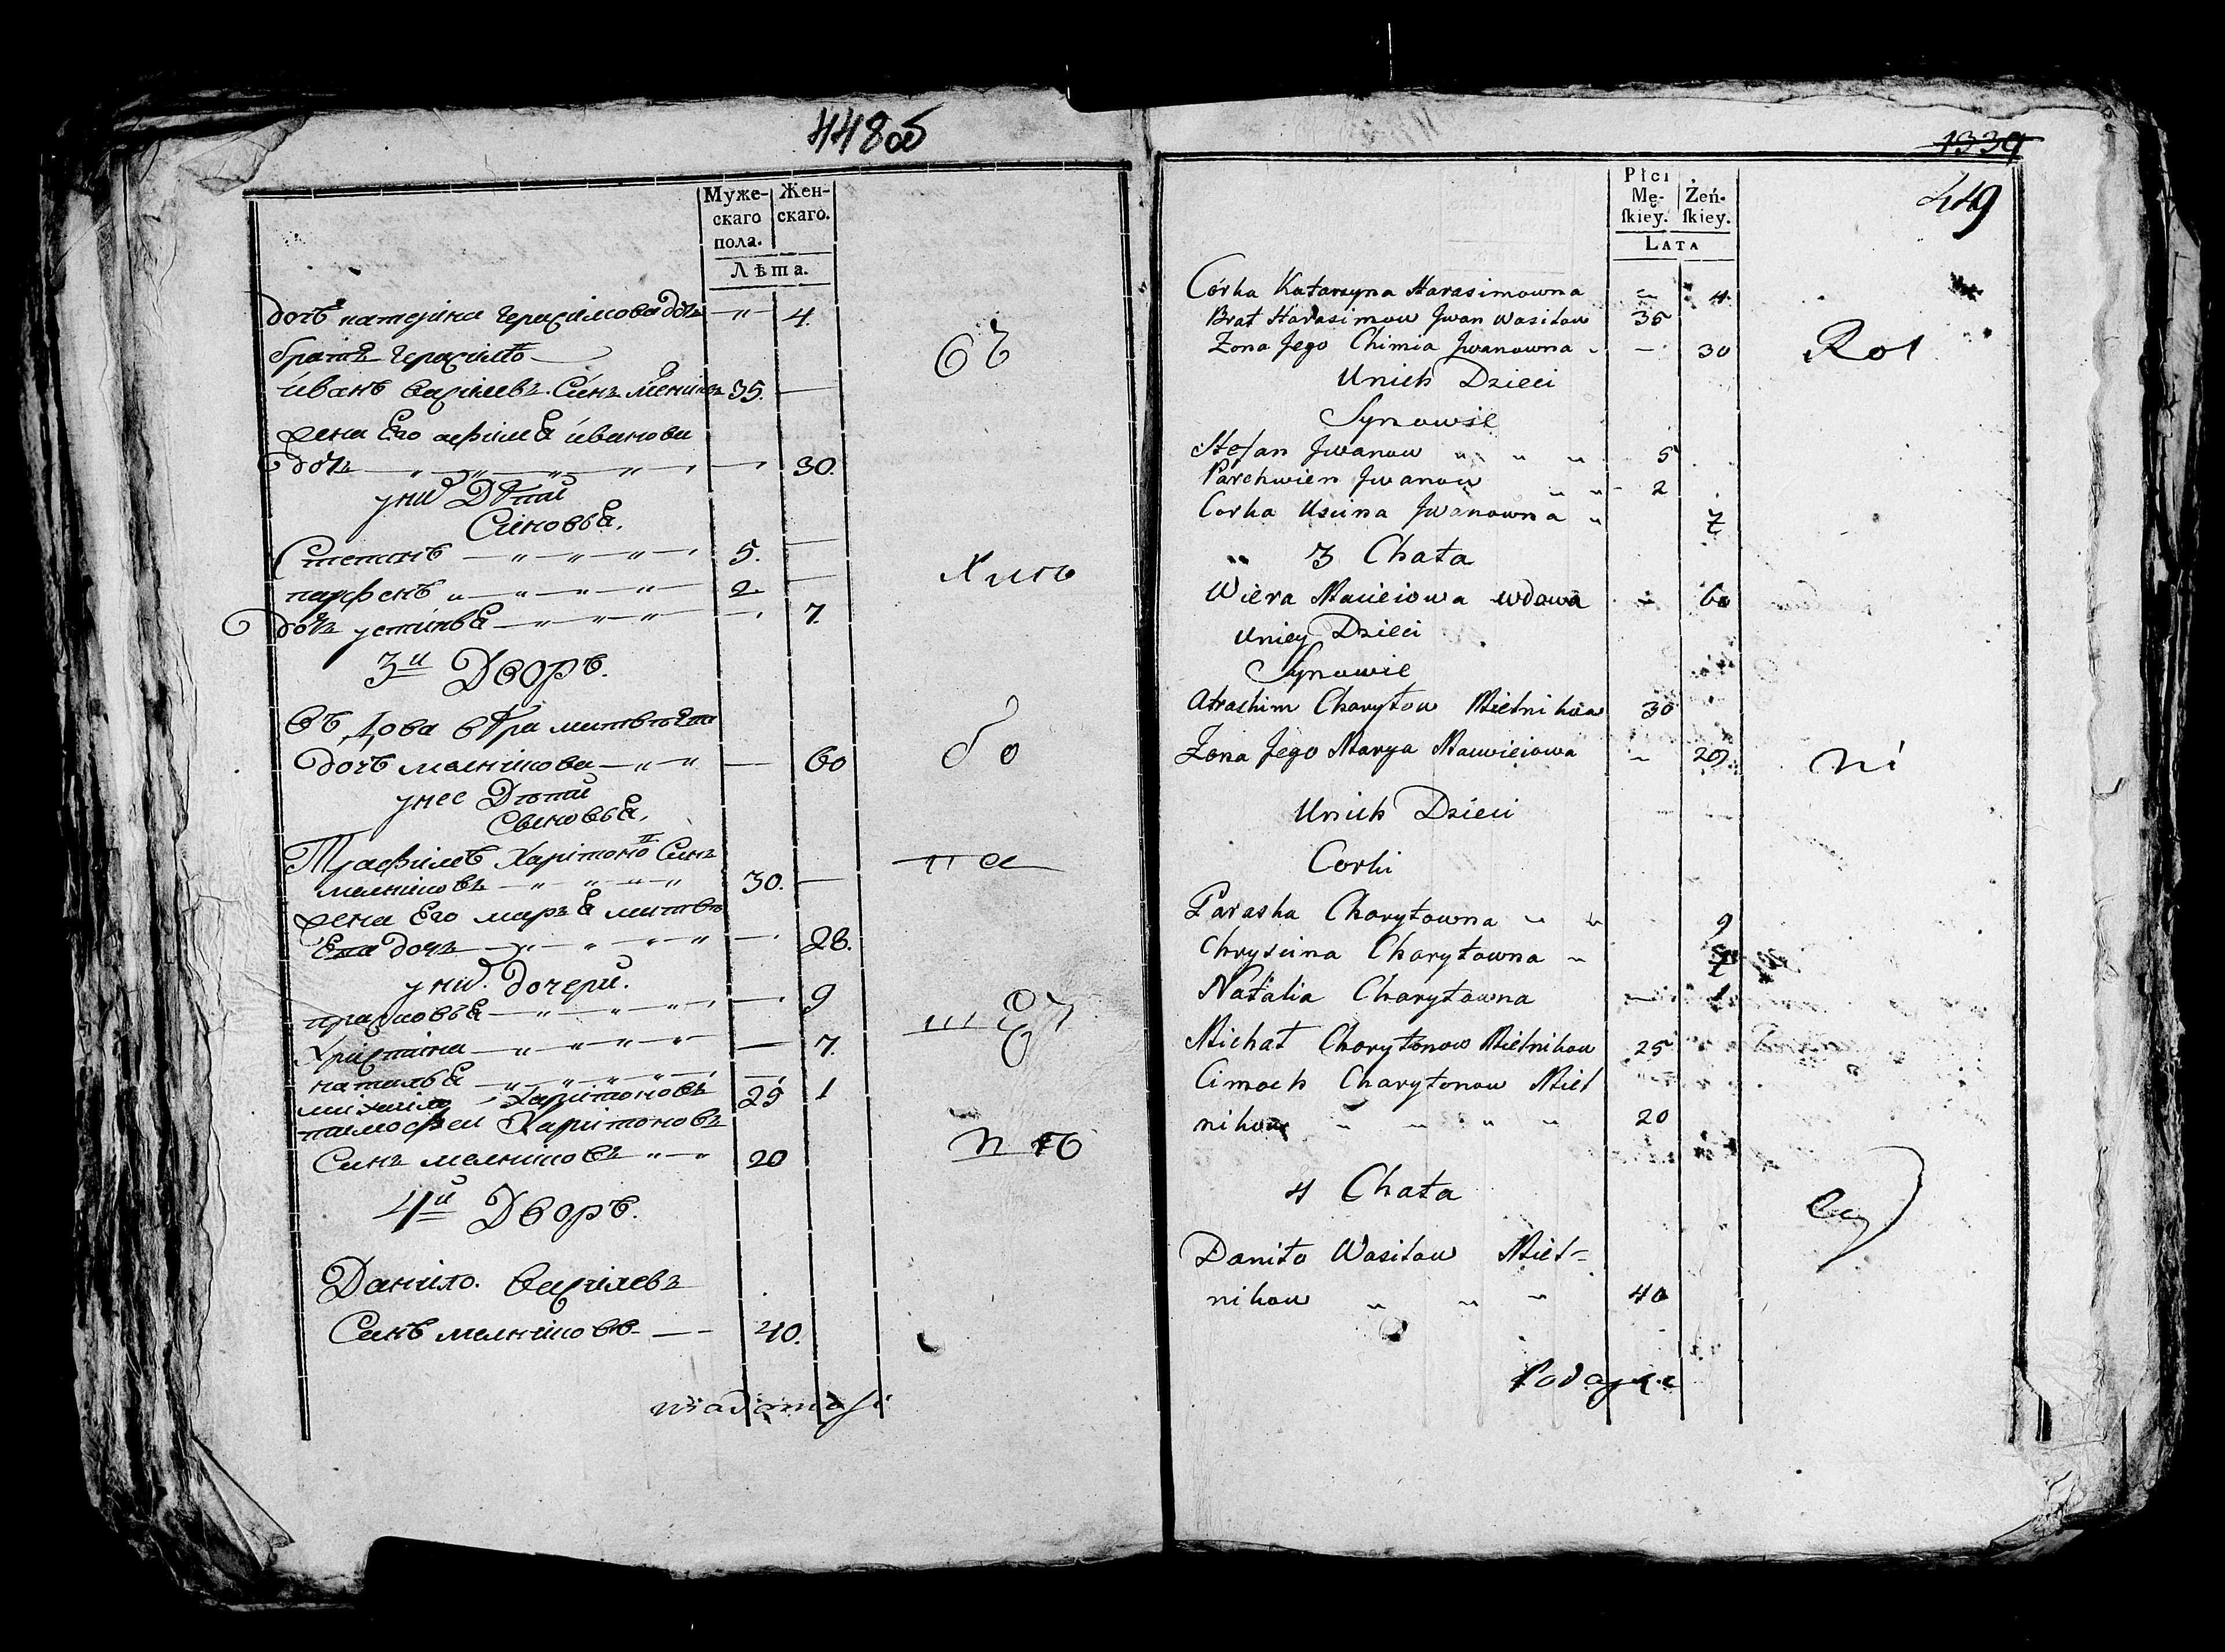 448об
Муже-
скаго
пола.
Жен-
скаго.
Лѣта.
дочь катерина Герасимова дочь 4.
братъ Герасимо
иванъ василевъ Синъ 35.
жена Его афимЕ иванова
дочь 30.
уних Дѣти
СиновьЕ.
Степанъ 5.
парфенъ 2.
дочь устиньЕ 7.
3й Дворъ.
Въдова вѣра
дочь мелникова 60
унее Дѣти
СыновьЕ.
Трафимъ Харитоно Синъ
мелниковъ 30.
жена Его марьЕ матвѣ
Ева дочь 28.
уних дочери.
прасковьЕ 9
Христина 7.
натальЕ 1
михайло Харитоновъ 25
тимофеи Харитоновъ
Синъ мелниковъ 20
4й Дворъ.
Данило. василевъ
Синъ мелниковъ 40.
wiadomosi
бо
па
1339
449
Płci
Mę-
ſkiey.
Żeń-
ſkiey.
Lata
Córka Katarzyna Harasimowna 4
Brat Harasimow Jwan Wasilow 35
Zona Jego Chimia Jwanowna 30
Unich Dzieci
Synowie
Stefan Jwanow 5
Parchwien Jwanow 2
Corka Uscina Jwanowna 7
3 Chata
Wiera Macieiowa wdowa 60
Uniey Dzieci
Synowie
Atrachim Charytow Mielnikow 30
Zona Jego Marya Mawieiowa
Unich Dzieci
Corki
Paraska Charytowna 9
Chryscina Charytowna 7
Natalia Charytowna 1
Michał Charytonow Mielnikow 25
Cimoch Charytonow Miel
nikow 20
4 Chata
Daniło Wasilow Miel=
nikow 40
Podayące
Rot
ni